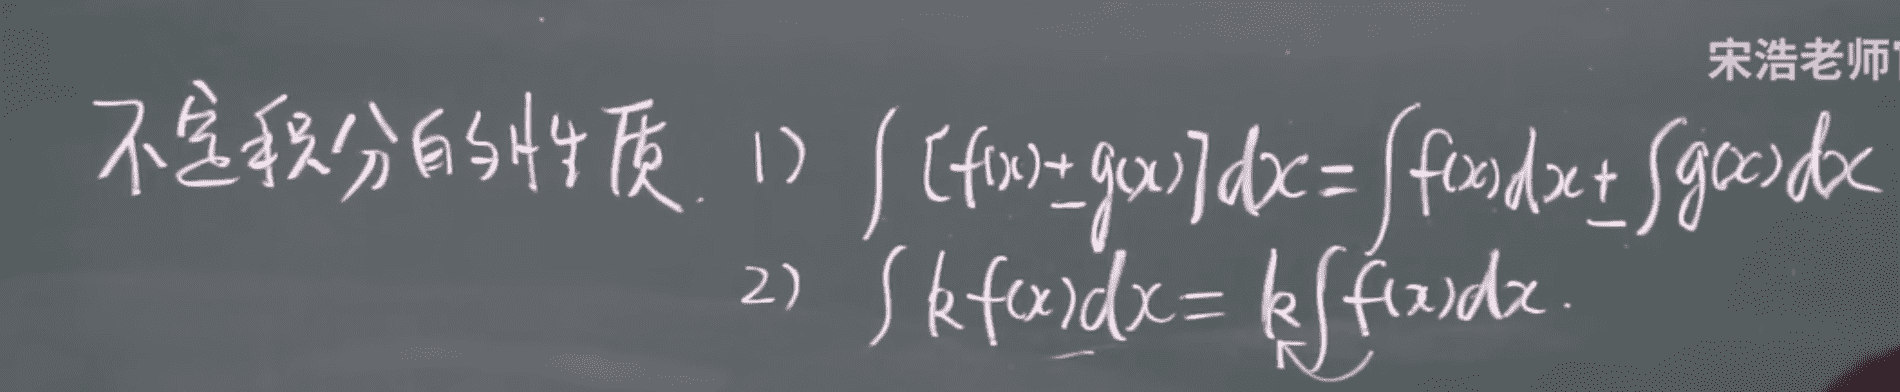 宋浩老师
不定积分的性质. 1) ∫[f(x)±g(x)]dx=∫f(x)dx±∫g(x)dx
2) ∫kf(x)dx=k∫f(x)dx.